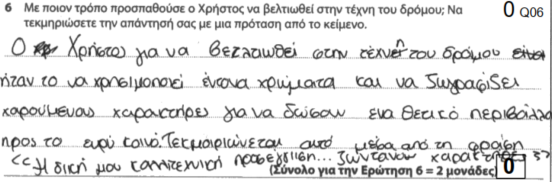 6 Με ποιον τρόπο προσπαθούσε ο Χρήστος να βελτιωθεί στην τέχνη του δρόμου; Να 0 Q06
τεκμηριώσετε την απάντησή σας με μια πρόταση από το κείμενο.
Ο Χρήστος για να βελτιωθεί στην τέχνη του δρόμου
ήταν το να χρησιμοποιεί έντονα χρώματα και να ζωγραφίζει
χαρούμενας χαρακτήρες για να δώσουν ενα θετικό περιβάλλο
προς το ευρύ κοινό. Τεκμαιριώνεται αυτό μέσα από τη φράση
<<Η δική μου καλλιτεχνική προσέγγιση... ζωντανών χαρακτήρων >>
(Σύνολο για την Ερώτηση 6 = 2 μονάδες) 0